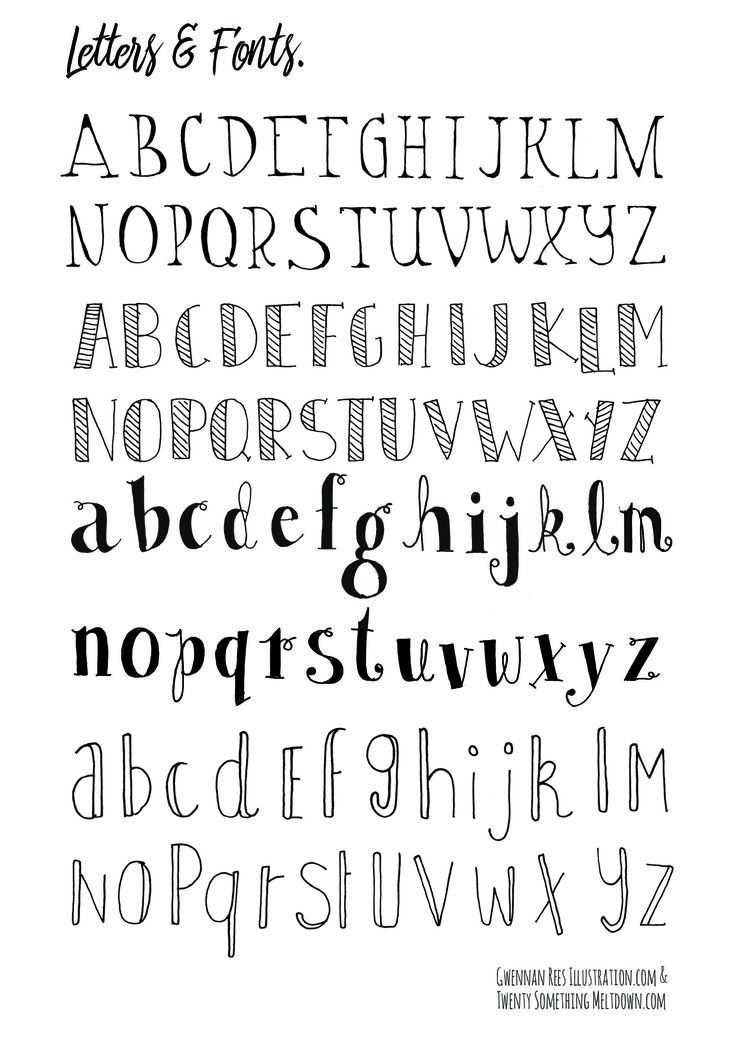 Letters & Fonts.
ABCDEFGHIJKLM
NOPQRSTUVWXYZ
ABCDEFGHIJKLM
NOPQRSTUVWXYZ
abcdefghijklm
nopqrstuvwxyz
abcdEfghijklM
NOPqrstUVWXyZ
Gwennan Rees Illustration.com &
Twenty Something Meltdown.com